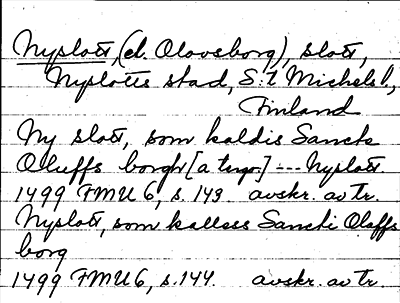 Nyslott, (el. Olovsborg), slott,
Nyslotts stad, S:t Michels l.,
Finland
Ny slott, som kaldis Sancte
Oluffs borgh --- Nyslott.
1499 FMU 6, s. 143. avskr. av tr.
Nyslott, som kallass Sancti Olaffs
borg
1499 FMU 6, s. 144. avskr. av tr.